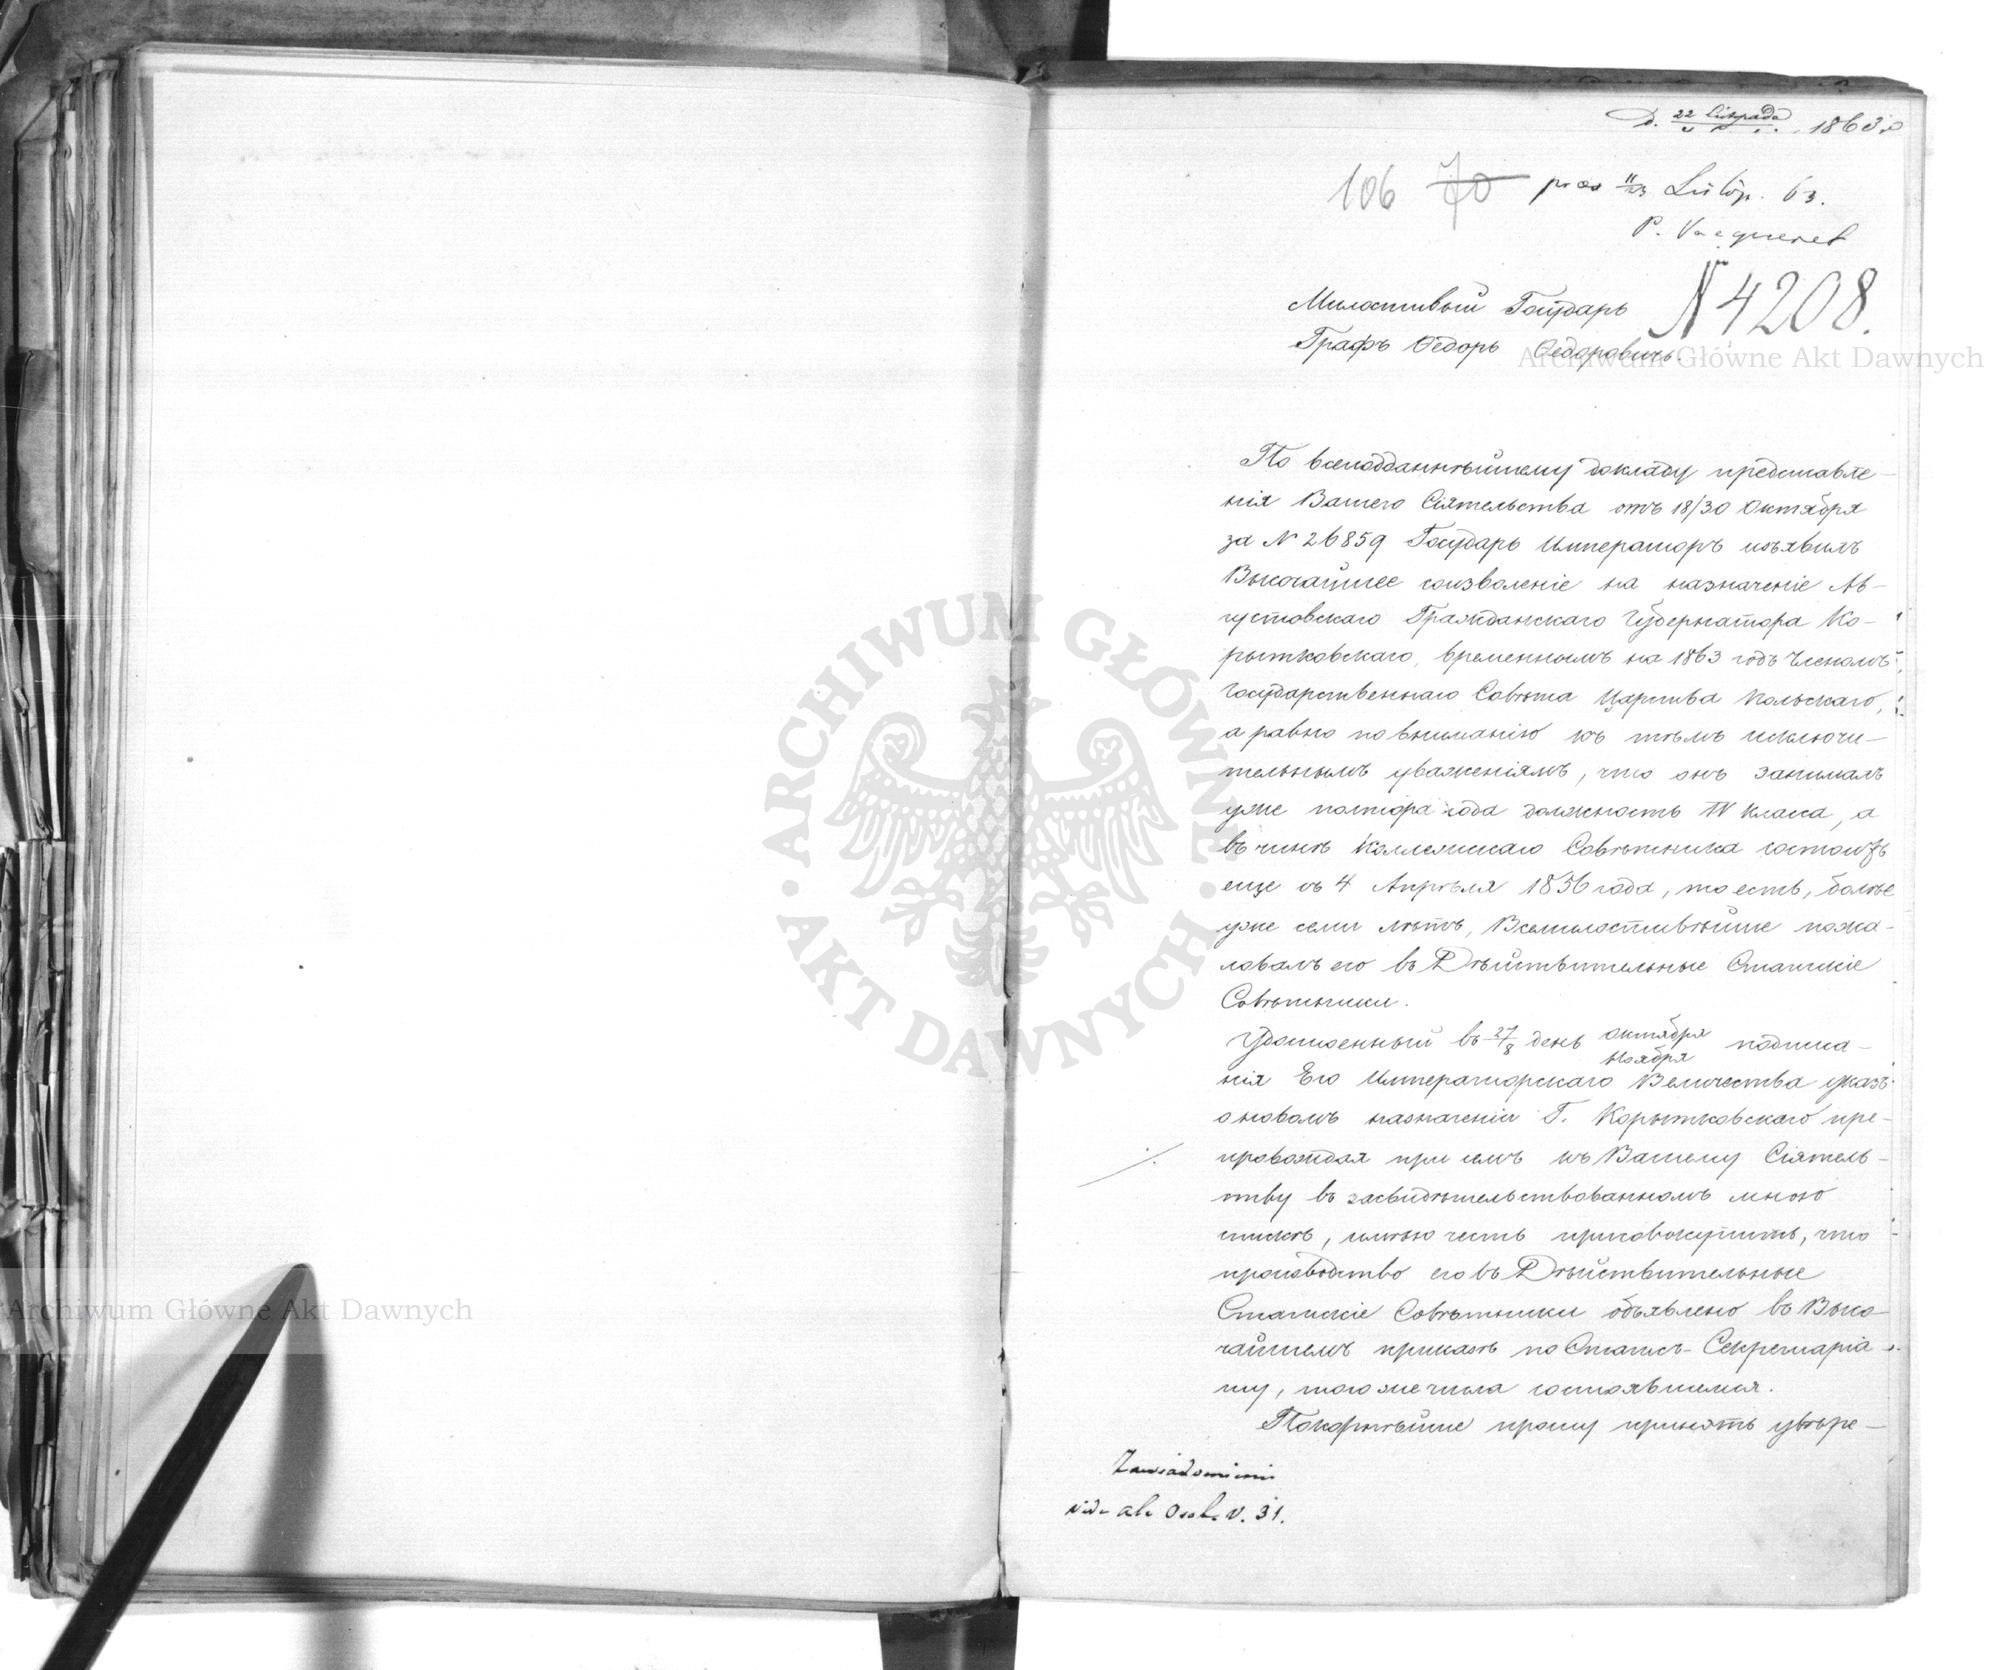 D. 22 Listopada 1863 r.
106 70 praes 11/23 Listop. 63.
P. Vacqueret
N 4208.
Милостивый Государь
Графъ Ѳедоръ Ѳедоровичъ.
Archiwum Główne Akt Dawnych
По всеподданнѣйшему докладу представле-
нія Вашего Сіятельства отъ 18/30 Октября
за N 26859 Государь Императоръ изъявилъ
Высочайшее соизволеніе на назначеніе Ав-
густовскаго Гражданскаго Губернатора Ко-
рытковскаго, временнымъ на 1863 годъ Членомъ
Государственнаго Совѣта Царства Польскаго,
а равно по вниманію къ тѣмъ исключи-
тельнымъ уваженіямъ, что онъ занималъ
уже полтора года должность IV класса, а
въ чинѣ Коллежскаго Совѣтника состоитъ
еще съ 4 Апрѣля 1856 года, то есть, болѣе
уже семи лѣтъ, Всемилостивѣйше пожа-
ловалъ его въ Дѣйствительные Статскіе
Совѣтники.
Удостоенный въ 27/8 день октября/Ноября подписа-
нія Его Императорскаго Величества указъ
о новомъ назначеніи Г. Корытковскаго пре-
провождая при семъ къ Вашему Сіятель-
ству въ засвидѣтельствованномъ мною
спискѣ, имѣю честь присовокупить, что
производство его въ Дѣйствительные
Статскіе Совѣтники объявлено въ Высо-
чайшемъ приказѣ по Статсъ-Секретаріа-
ту, того же числа состоявшемся.
Покорнѣйше прошу принять увѣре-
Zawiadomienie
vide akta Osob. V. 31.
ARCHIWUM GŁÓWNE · AKT DAWNYCH ·
Archiwum Główne Akt Dawnych